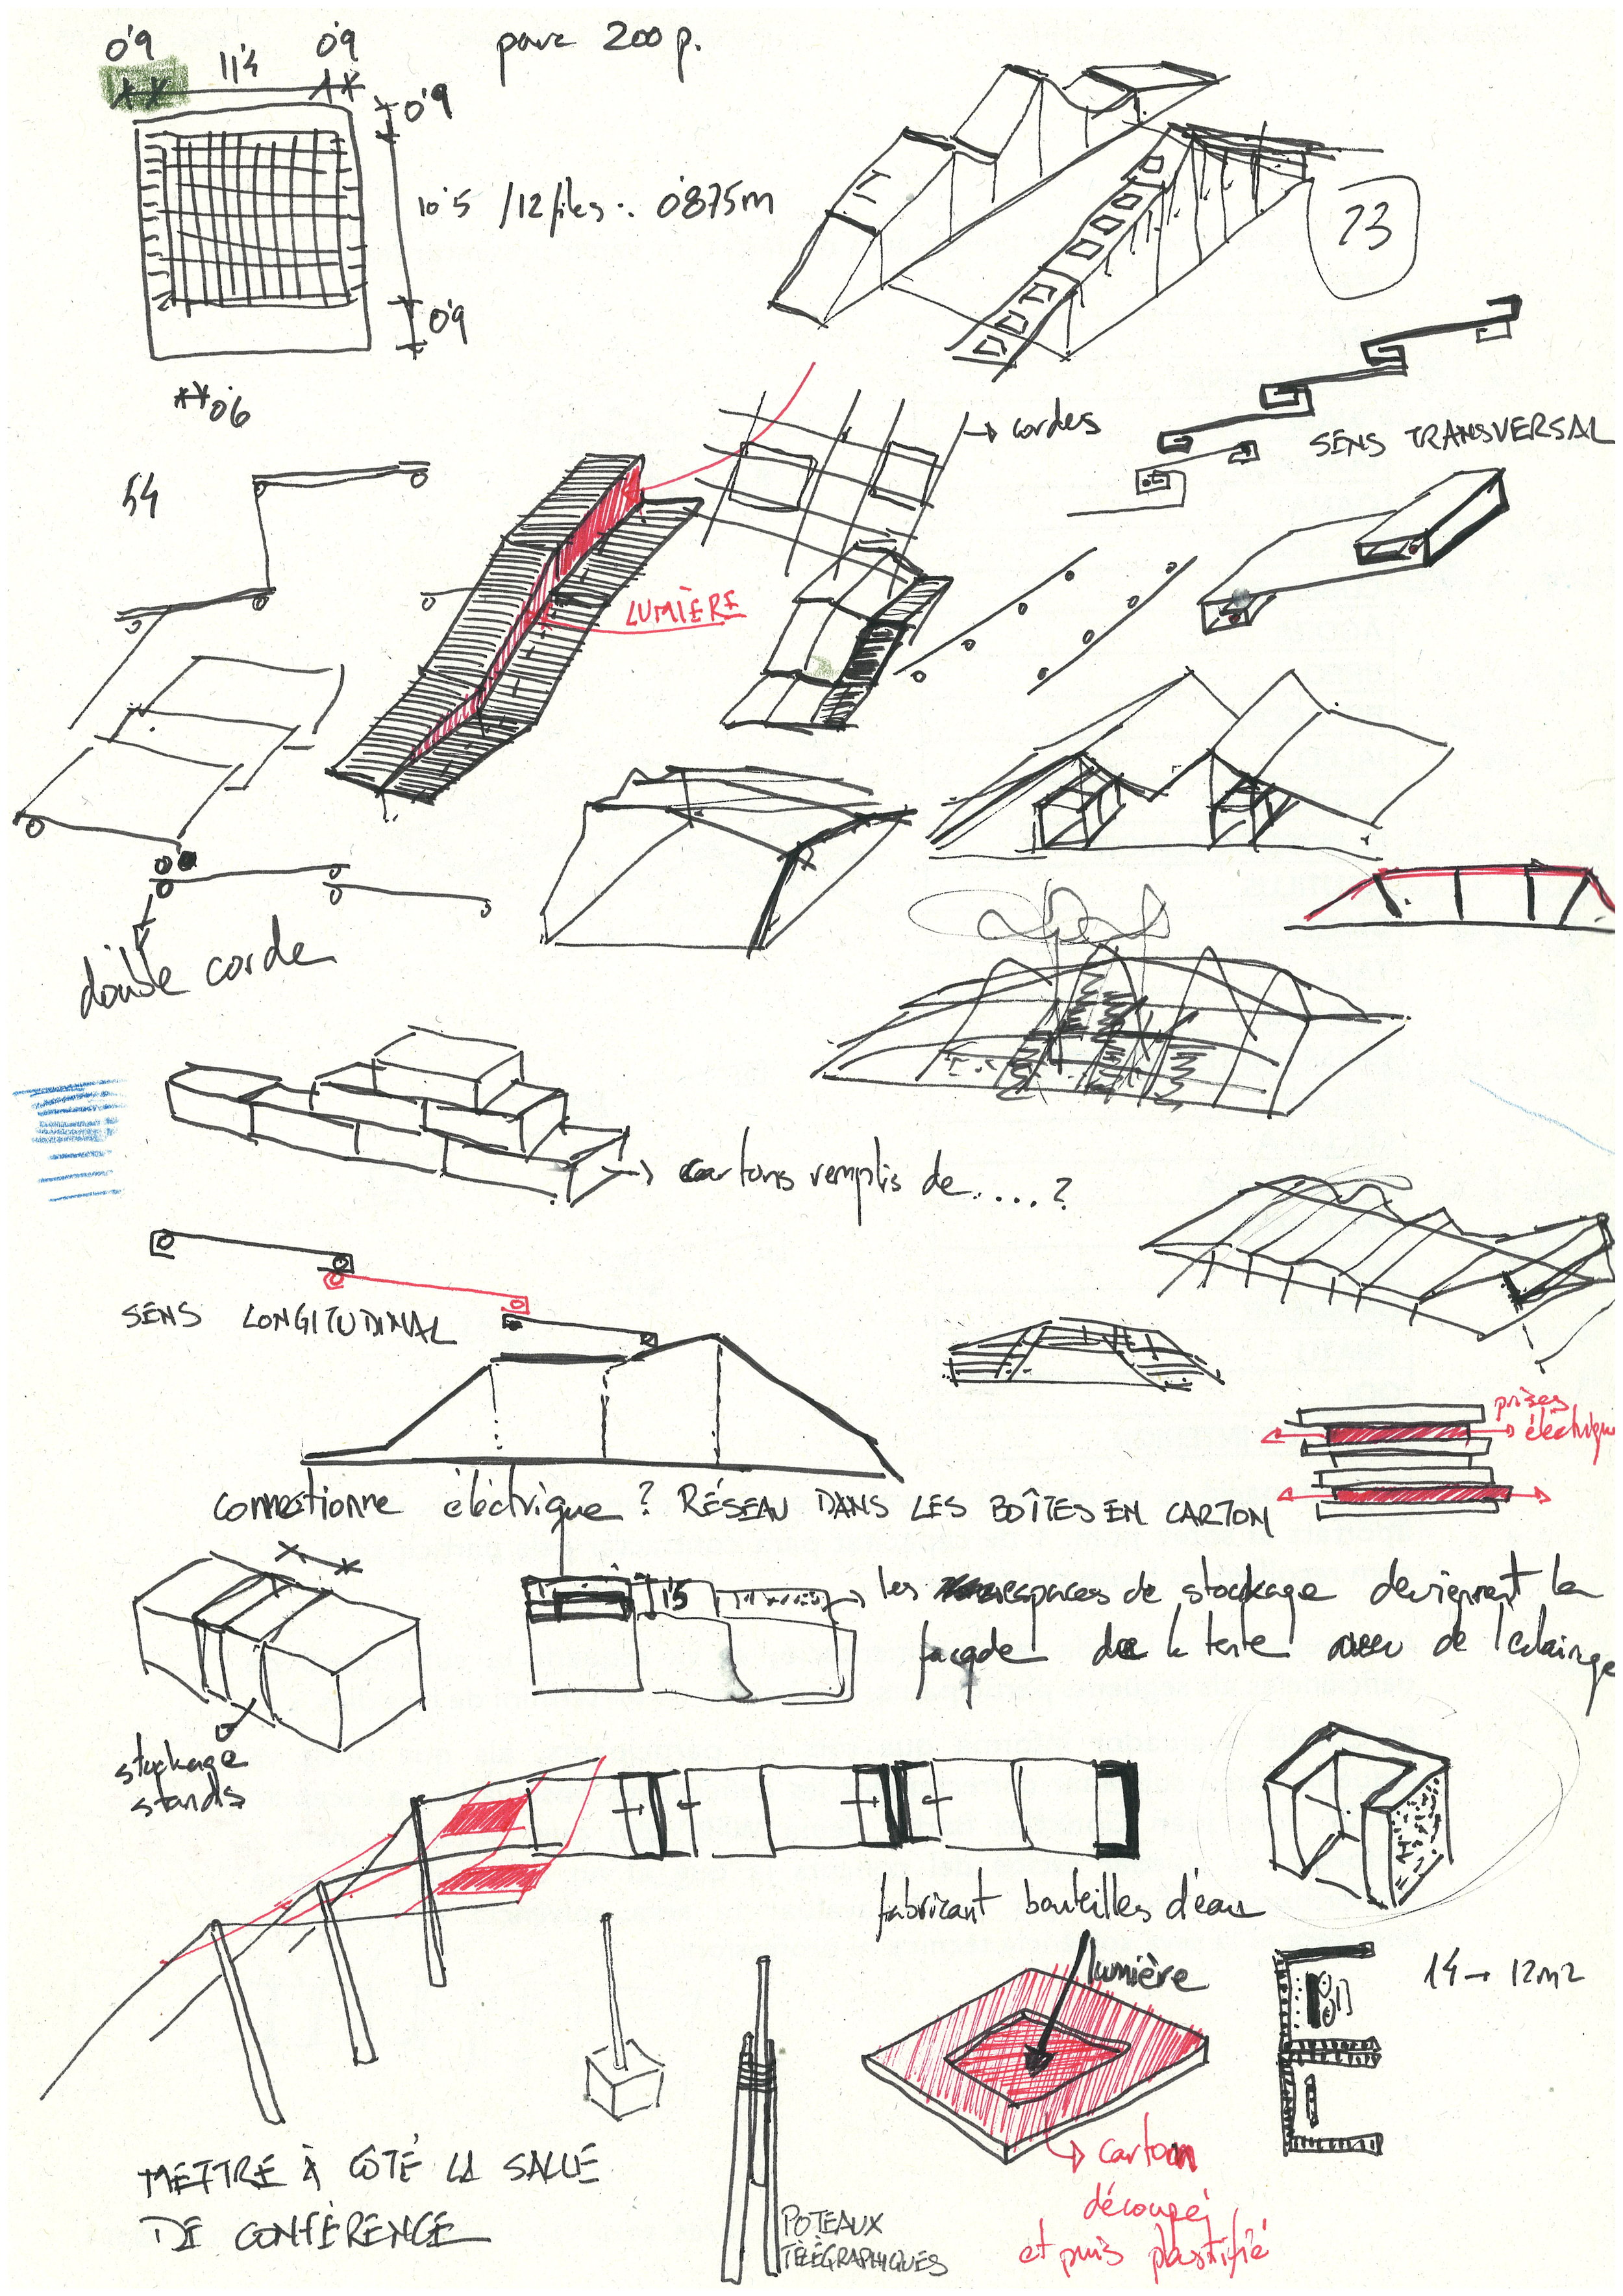 0'9
11'4
0'9
pour 200 p.
0'9
10'5 /12 files : 0'875m
0'9
23
0'6
→ cordes
SENS TRANSVERSAL
54
LUMIÈRE
double corde
→ cartons remplis de.....?
SENS LONGITUDINAL
prises
électriqu
électrique? RÉSEAU DANS LES BOÎTES EN CARTON
1'5
les espaces de stockage deviennent la
façade de la tente avec de l'éclairage
stockage
stands
fabricant bouteilles d'eau
lumière
14 → 12m2
METTRE À CÔTÉ LA SALLE
DE CONFÉRENCE
POTEAUX
TÉLÉGRAPHIQUES
carton
découpé
et puis plastifié